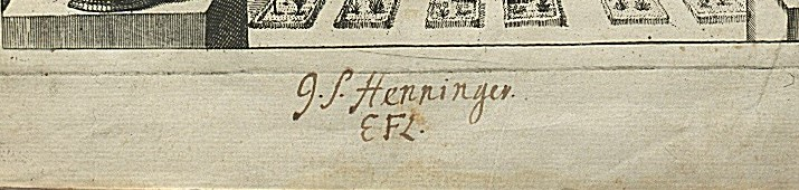 J. S. Henninger.
EFL.